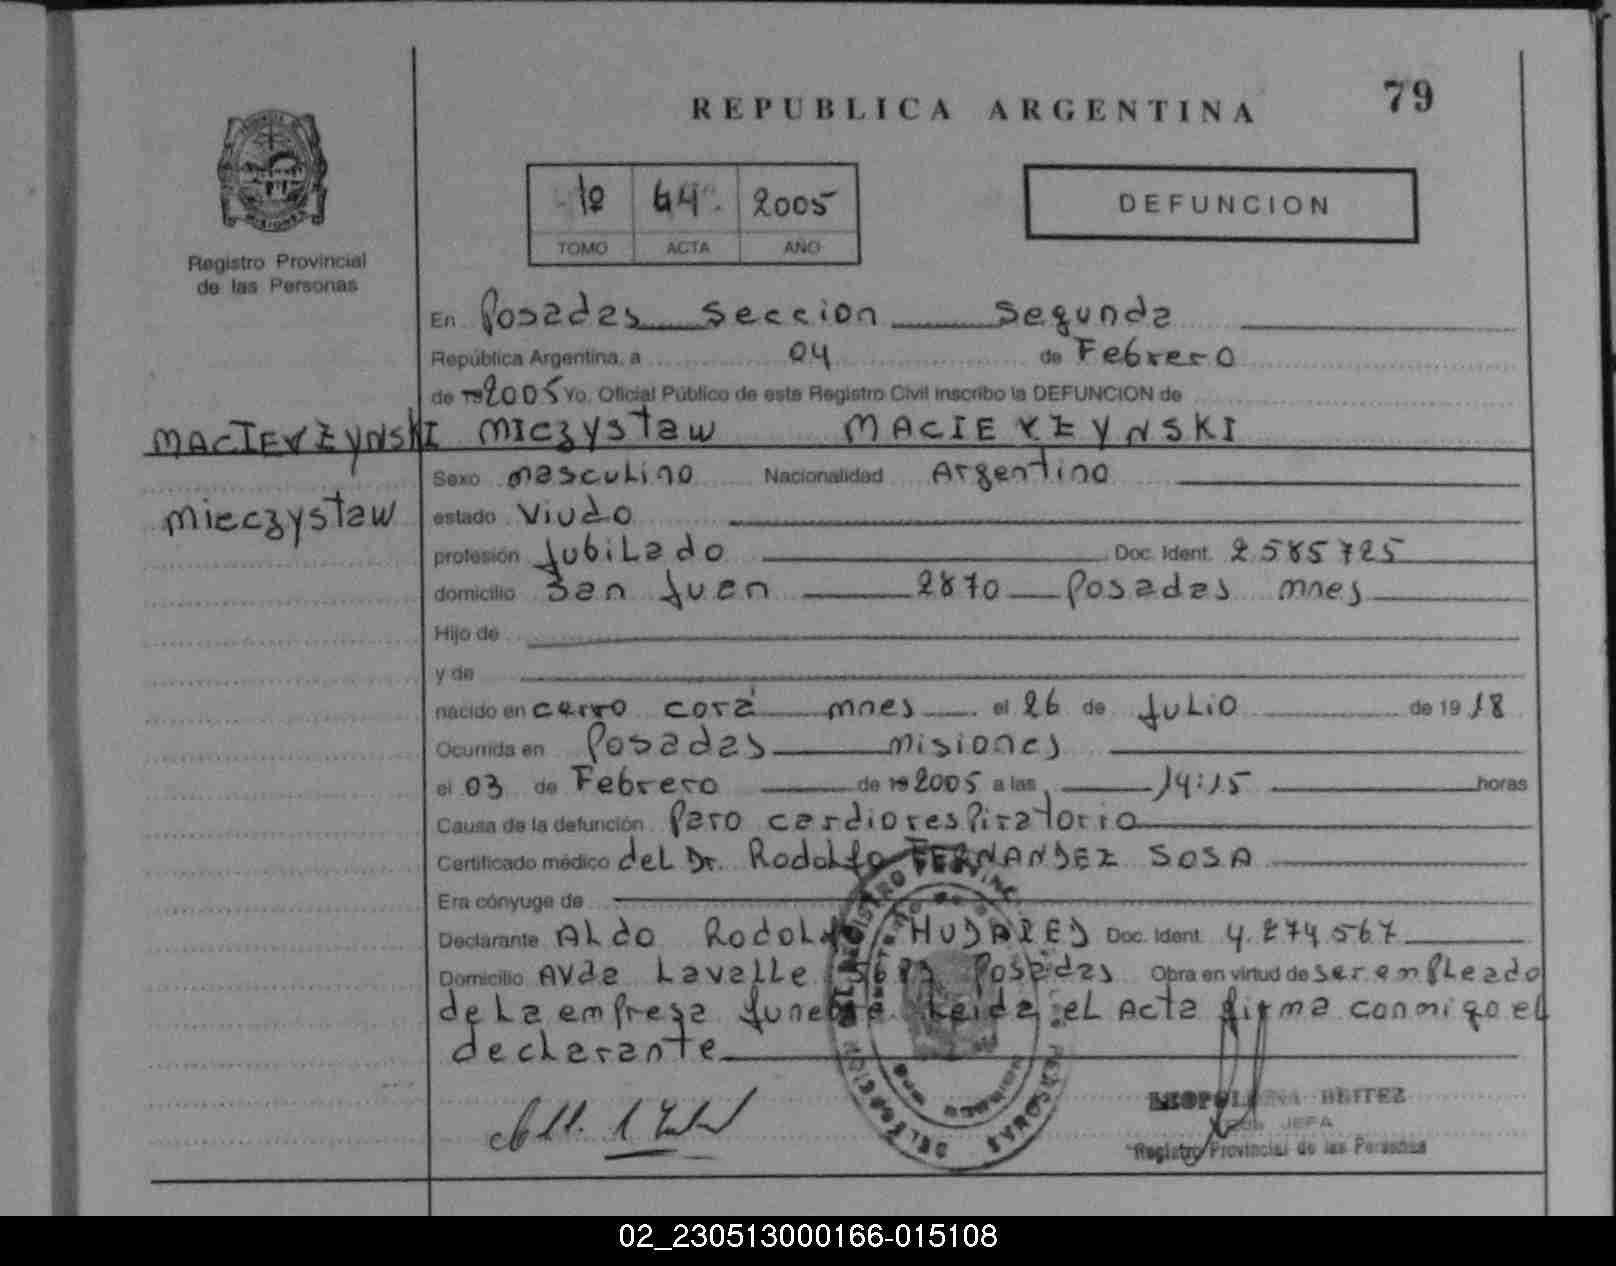 79
REPUBLICA ARGENTINA
1º 64 2005
TOMO ACTA AÑO
DEFUNCION
MISIONES
Registro Provincial
de las Personas
En Posadas Seccion Segunda
República Argentina, a 04 de Febrero
de 19 2005 Yo, Oficial Público de este Registro Civil inscribo la DEFUNCION de
MACIEYZYNSKI
Mieczystaw
Miczystaw MACIEYZYNSKI
Sexo masculino Nacionalidad Argentino
estado Viudo
profesión Jubilado Doc. Ident. 2.585725
domicilio San Juan 2870 Posadas mnes
Hijo de
y de
nacido en cerro corá mnes el 26 de Julio de 1918
Ocurrida en Posadas misiones
el 03 de Febrero de 19 2005 a las 14:15 horas
Causa de la defunción Paro cardiorespiratorio
Certificado médico del Dr. Rodolfo FERNANDEZ SOSA
Era cónyuge de
Declarante Aldo Rodolfo Doc. Ident. 4.274.567
Domicilio Avda Lavalle Posadas Obra en virtud de ser empleado
de la empresa funebre. Leida el Acta firma conmigo el
declarante
LEOPOLDINA BENITEZ
JEFA
Registro Provincial de las Personas
02_230513000166-015108